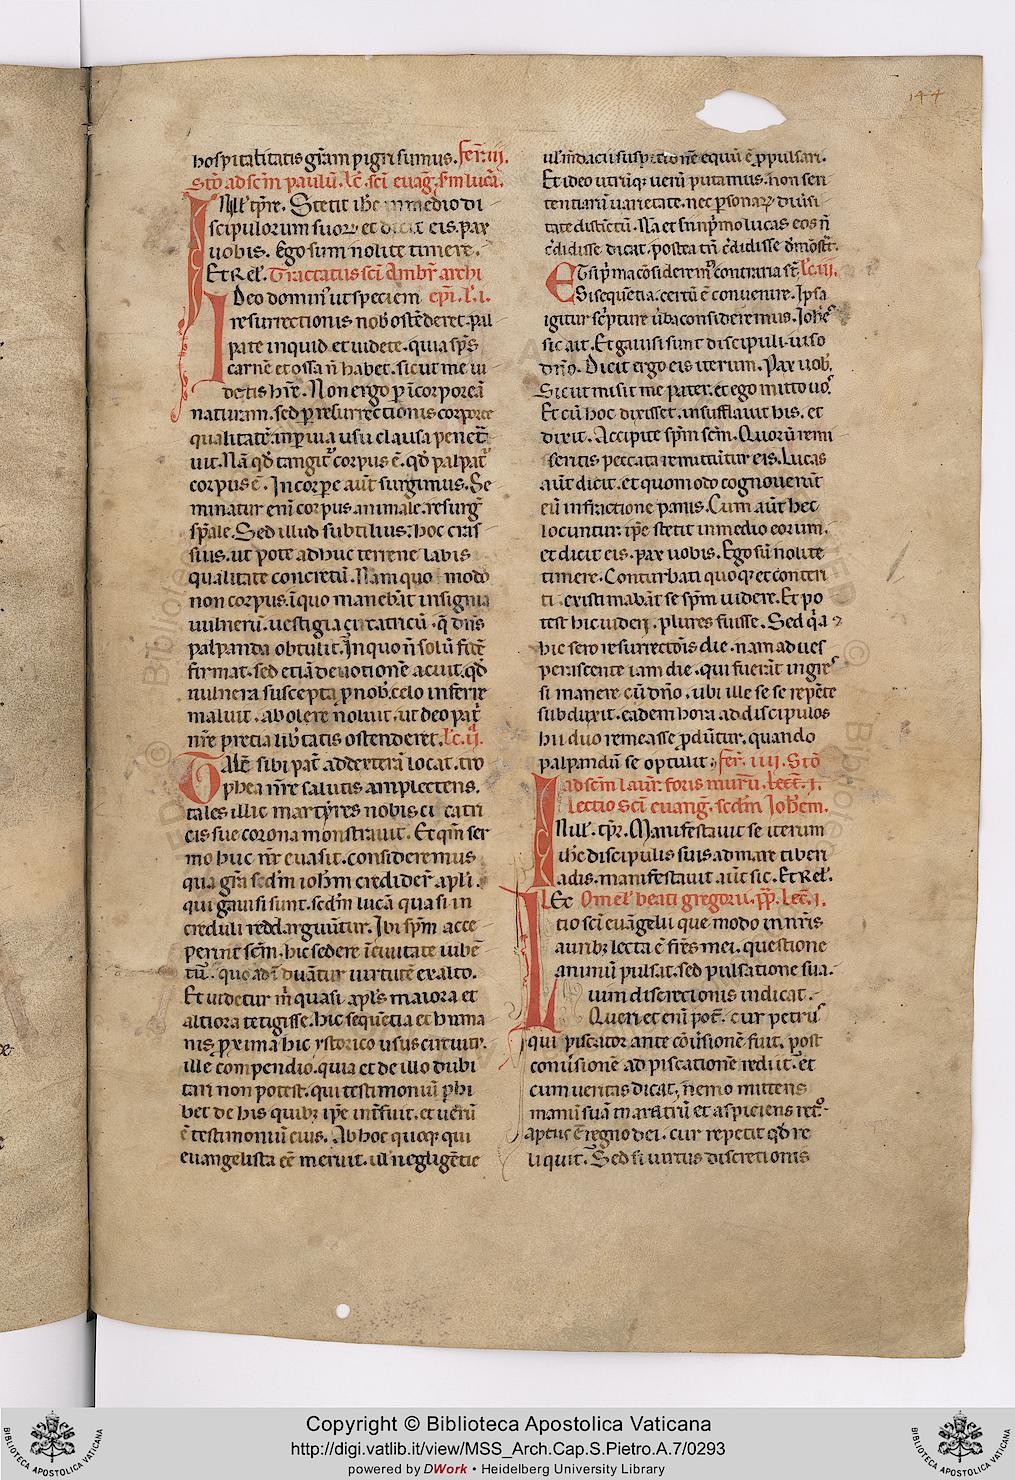 144
hospitalitatis gr̃am pigri sumus. fer̃. iii.
Stō ad sc̃m paulũ. lc̃. sc̃i euãg. s̃m lucã.
IN ill' tp̃re. Stetit ihc̃ in medio di
scipulorum suoꝝ et dicit eis. pax
uobis. Ego sum nolite timere.
Et Rel'. Tractatus sc̃i Ambr̃ archi
ADeo domin᷒ ut speciem ep̃i. l'. i.
resurrectionis nob᷒ oste͂deret. pal
pate inquid. et uidete. quia sp̃s
carne͂ et ossa ñ habet. sicut me ui
detis hr̃e. Non ergo ꝑ ĩcorporeã
naturam. sed ꝑ resurrectionis corporee
qualitate͂. inꝑuia usu clausa penet͂
uit. Nã qd̃ tangit᷒ corpus ẽ. qd̃ palpat᷒
corpus ẽ. In corpe aũt surgimus. Se
minatur eni͂ corpus animale. resurg̃
sp̃ale. Sed illud subtilius. hoc cras
sius. ut pote adhuc terrene labis
qualitate concretũ. Nam quo modo
non corpus. ĩ quo maneba͂t insignia
uulnerũ. uestigia cicatricũ. q̃ dn̄s
palpanda obtulit. In quo ñ solũ fide͂
firmat. sed etiã deuotione͂ acuit. qd̃
uulnera suscepta ꝓ nob᷒. celo inferre
maluit. abolere noluit. ut deo pat͂
nr̃e precia lib͂tatis ostenderet. lc̃. ii.
TAle͂ sibi pat͂ ad dexterã locat. tro
phea nr̃e salutis amplectens.
tales illic martyres nobis ci catri
cis sue corona monstrauit. Et qm̃ ser
mo huc nr̃ euasit. consideremus
qua gr̃a sedm̃ ioh͂m credider̃ apl̃i.
qui gauisi sunt. sedm̃ lucã quasi in
creduli redd arguũtur. Ibi sp̃m acce
perint sc̃m. hic sedere ĩ ciuitate iube͂
tũ. quo ad ĩduãtur uirtute͂ ex alto.
Et uidetur m͂ quasi apl's maiora et
altiora tetigisse. hic seque͂tia et huma
nis ꝓxima hic ystorico usus circuitu.
ille compendio. quia et de illo dubi
tari non potest. qui testimoniũ phi
bet de his quib; ip̃e int͂fuit. et uerũ
ẽ testimoniũ eius. Ab hoc quoq; qui
euangelista eẽ meruit. ul' neglige͂tie
ul' m͂dacii suspitione͂ equũ ẽ ꝓpulsari.
Et ideo utrũq; uerũ putamus. non sen
tentiarũ uarietate. nec ꝑsonaꝝ diũsi
tate disti͂ctũ. Nã et si in primo lucas eos ñ
c͂didisse dicat. postea tñ c͂didisse demo͂str̃.
Et si p͂ma co͂siderem᷒ contraria st͂ lc̃. iii.
Si seque͂tia. certũ ẽ conuenire. Ipsa
igitur sc͂pture ũba consideremus. Ioh͂es
sic ait. Et gauisi sunt discipuli uiso
dño. Dicit ergo eis iterum. Pax uob᷒.
Sicut misit me pater. et ego mitto uos.
Et cũ hoc dixisset. insufflauit his. et
dixit. Accipite sp̃m sc̃m. Quorũ remi
seritis peccata remittũtur eis. Lucas
aũt dicit. et quomodo cognouerũt
eũ in fractione panis. Cum aũt hec
locuntur. ip̃e stetit in medio eorum.
et dicit eis. pax uobis. Ego sũ nolite
timere. Conturbati quoq; et conterri
ti existimabãt se sp̃m uidere. Et po
test hic uideri. plures fuisse. Sed q͂a
hic sero resurrectõis die. nam ad ues
perascente iam die. qui fuerãt ingres
si manere cũ dño. ubi ille se se repe͂te
subduxit. eadem hora ad discipulos
hii duo remeasse ꝓdũtur. quando
palpandũ se optulit. fer̃. iiii. Stō
ad sc̃m laur̃. foris murũ. Lect̃. i.
Lectio sc̃i euang̃. sedm̃ Ioh͂em.
IN ill'. tp̃r. Manifestauit se iterum
ihc̃ discipulis suis ad mare tiberi
adis. manifestauit aũt sic. Et Rel'.
LEc Omel' beati gregorii. pp̃. Lect̃. i.
tio sc̃i euangelii que modo in nr̃is
aurib; lecta ẽ fr̃es mei. questione
animũ pulsat. sed pulsatione sua.
uim discrecionis indicat.
Queri et eni͂ pot̃. cur petrus
qui piscator ante co͂ũsione͂ fuit. post
conũsione͂ ad piscatione͂ rediit. et
cum ueritas dicat. nemo mittens
manũ suã in aratrũ et aspiciens ret᷒.
aptus ẽ regno dei. cur repetit qd̃ re
liquit. Sed si uirtus discretionis
Copyright © Biblioteca Apostolica Vaticana
http://digi.vatlib.it/view/MSS_Arch.Cap.S.Pietro.A.7/0293
powered by DWork • Heidelberg University Library